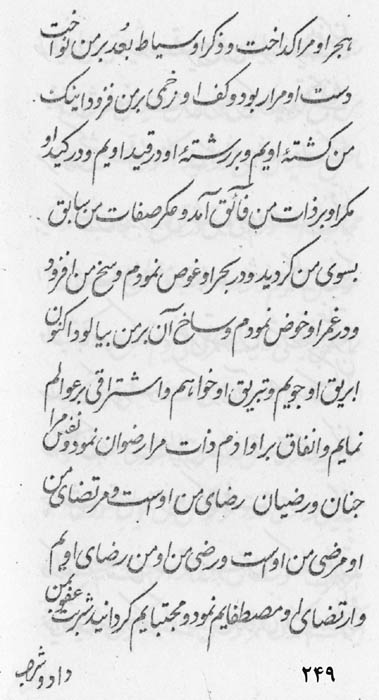 هجر او مرا گداخت و ذکر او سیاط بُعد بر من نواخت
دست او مرا ربود و کف او زخمی بر من فزود اینک
من کشتهٔ اویم و بر رشتهٔ او در قید اویم و در کید او
مکر او بر ذات من فائق آمد و عکر صفات من سابق
بسوی من گردید و در بحر او غوص نمودم و سخ من افزود
و در غمر او خوض نمودم و ساخ آن بر من بیالود اکنون
ابریق او جویم و تبریق او خواهم و اشتراقی بر عوالم
نمایم و انفاق بر او ادم ذات مرا رضوان نمود و نفس مرا
جنان و رضیان رضای من اوست و مرتضای من
او مرضی من اوست و رضی من او من رضای اویم
و ارتضای او مصطفایم نمود و مجتبایم گردانید شربت عفو بمن
داد و شرب
۲۴۹